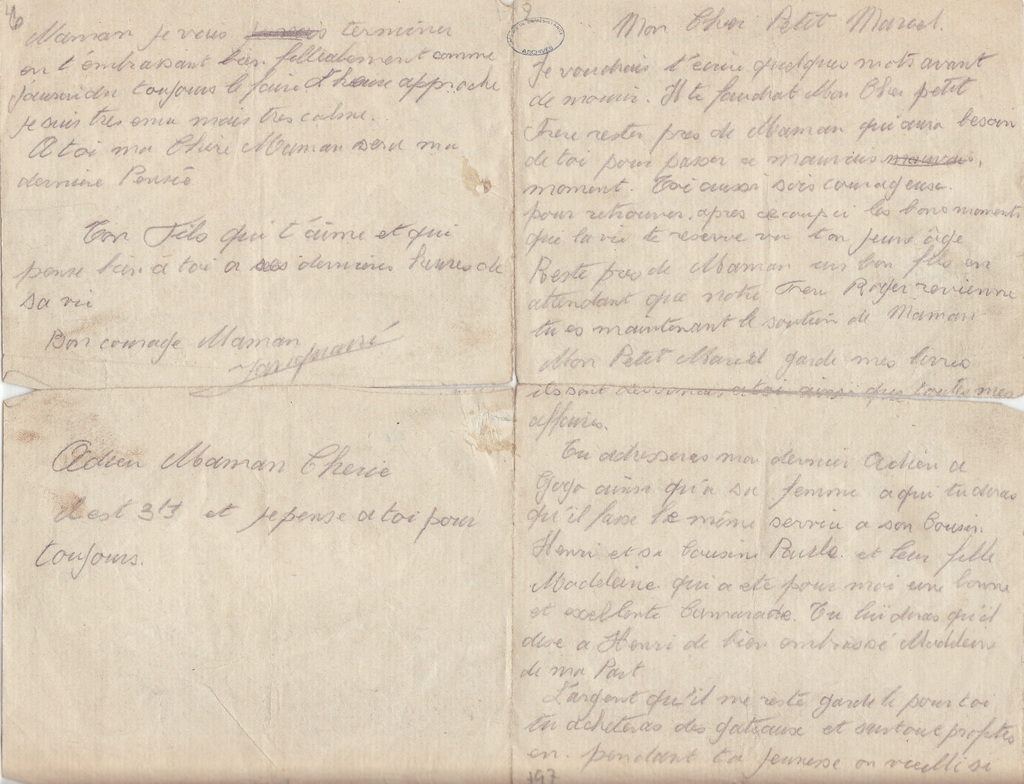 Maman je vous termine
en t'embrassant bien filleulement comme
toujours le faire l'heure approche
je suis tres emu mais tres calme.
A toi ma Chère Maman sera ma
dernière Pensée
Ton Fils qui t'aime et qui
pense bien à toi a ses dernières heures de
sa vie
Bon courage Maman
Adieu Maman Cherie
il est 3h et je pense a toi pour
toujours.
2
ARCHIVES
Mon Cher Petit Marcel
Je voudrais t'ecrire quelques mots avant
de mourir. Il te faudrat Mon Cher petit
Frere rester près de Maman qui aura besoin
de toi pour passer ce mauvais
moment. Toi aussi sois courageuse
pour retrouver après ce coup ci les bons moments
que la vie te reserve vu ton jeune âge
Reste près de Maman un bon fils en
attendant que notre Frere Roger revienne
tu es maintenant le soutien de Maman
Mon Petit Marcel garde mes livres
ils sont a toi ainsi que toutes mes
affaires.
Tu adresseras mon dernier Adieu a
Gogo ainsi qu'a sa femme a qui tu diras
qu'il fasse le même servir a son Cousin
Henri et sa Cousine et leur fille
Madeleine qui a eté pour moi une bonne
et excellente Camarade. Tu lui diras qu'il
dise a Henri de bien embrassé Madeleine
de ma Part.
L'argent qu'il me reste garde le pour toi
tu acheteras des gateaux et surtout profites
en pendant ta jeunesse on vieilli si
197